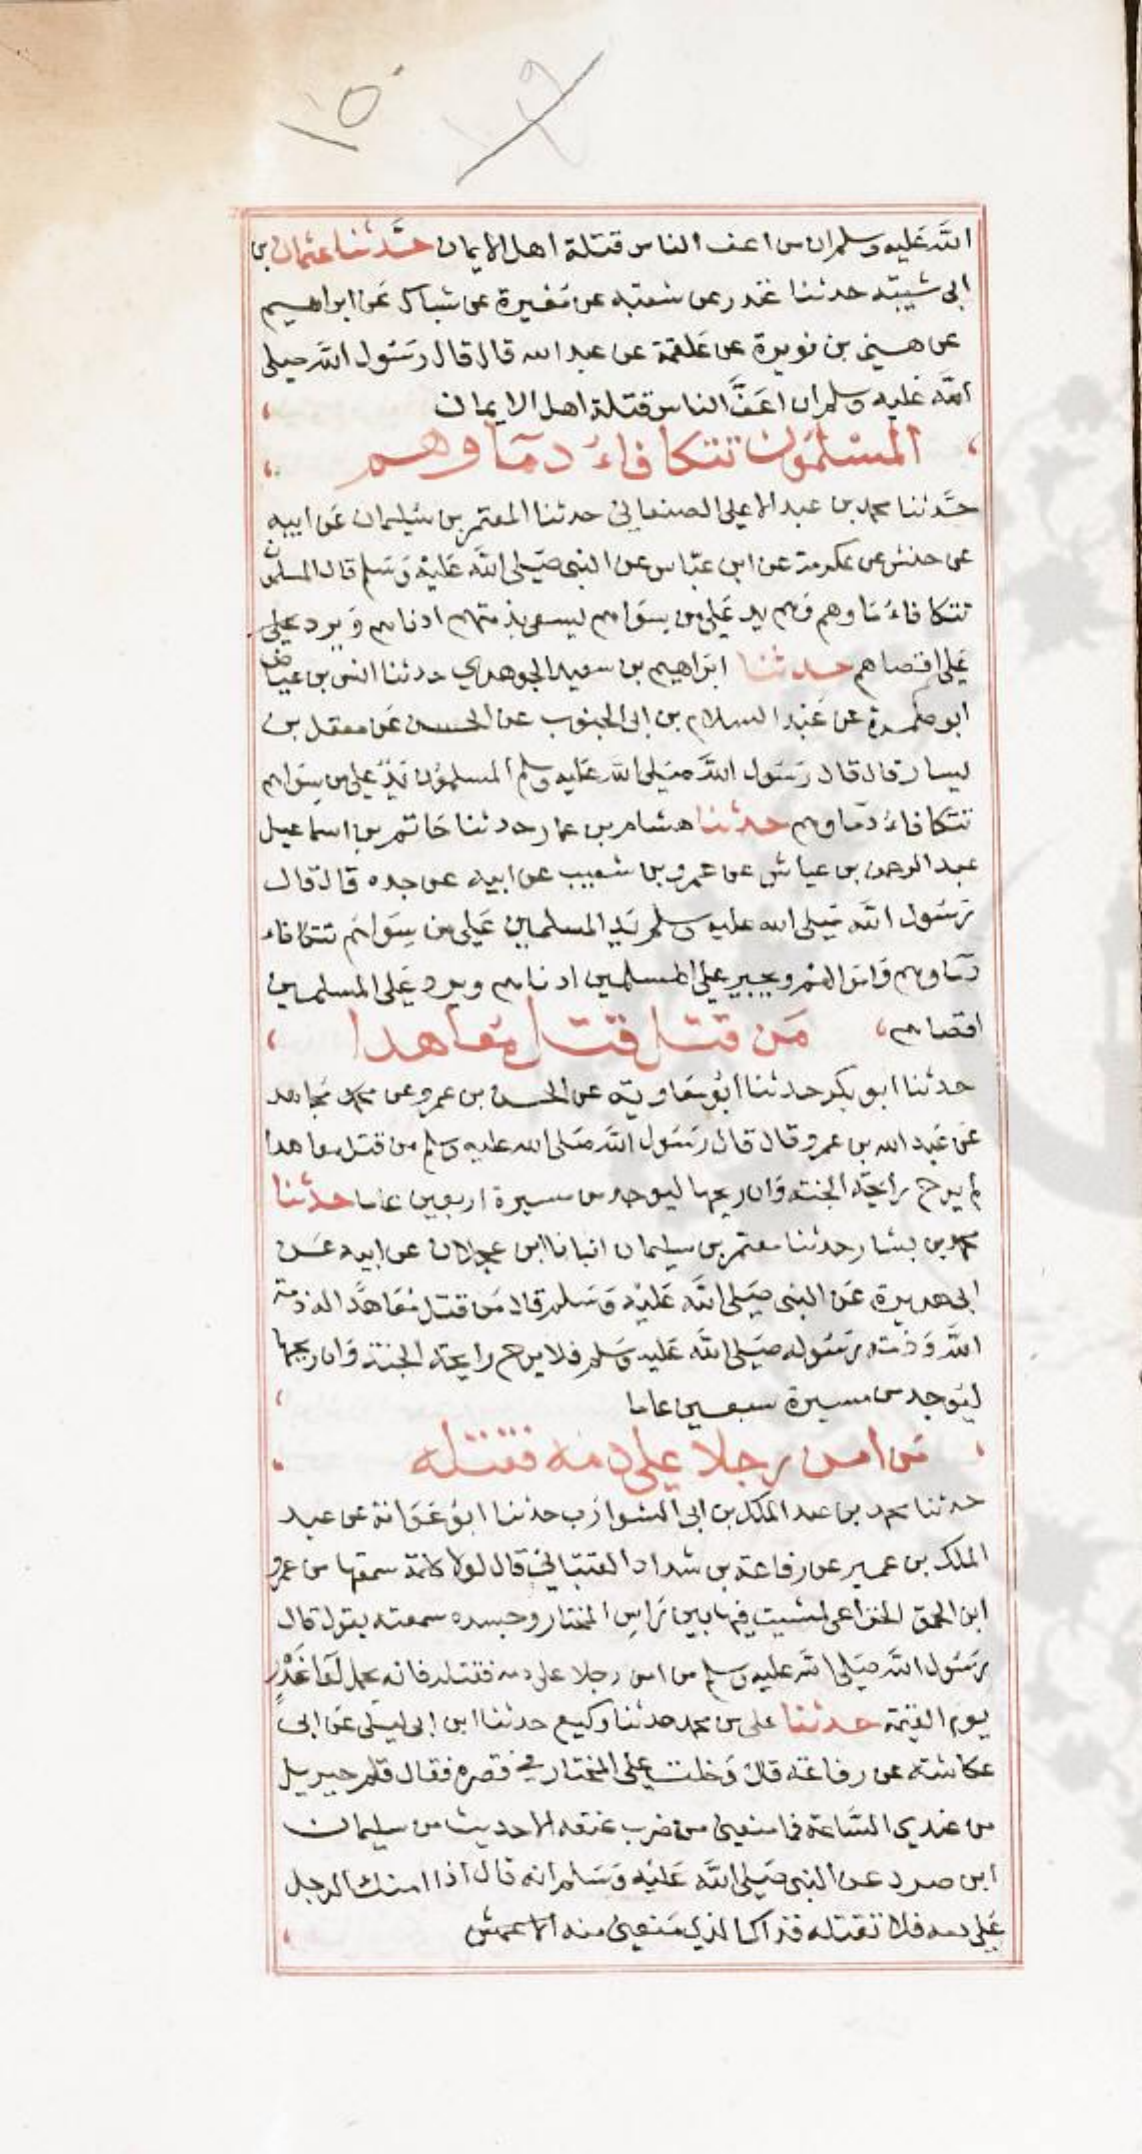 ١٥٠
الله عليه وسلم ان من اعف الناس قتلة اهل الايمان حدثنا عثمان بن
ابي شيبة حدثنا غندر عن شعبة عن مغيرة عن شباك عن ابراهيم
عن هني بن نويرة عن علقمة عن عبد الله قال قال رسول الله صلى
الله عليه وسلم ان اعف الناس قتلة اهل الايمان
المسلمون تتكافاء دماوهم
حدثنا محمد بن عبد الاعلى الصنعاني حدثنا المعتمر بن سليمان عن ابيه
عن حنش عن عكرمة عن ابن عباس عن النبي صلى الله عليه وسلم قال المسلمون
تتكافاء دماوهم وهم يد على من سواهم يسعى بذمتهم ادناهم ويرد على
على اقصاهم حدثنا ابراهيم بن سعيد الجوهري حدثنا انس بن عياض
ابو ضمرة عن عبد السلام بن ابي الجنوب عن الحسن عن معقل بن
يسار قال قال رسول الله صلى الله عليه وسلم المسلمون يد على من سواهم
تتكافاء دماوهم حدثنا هشام بن عمار حدثنا حاتم بن اسماعيل
عبد الرحمن بن عياش عن عمرو بن شعيب عن ابيه عن جده قال قال
رسول الله صلى الله عليه وسلم يد المسلمين على من سواهم تتكافاء
دماوهم ويجير على المسلمين ادناهم ويرد على المسلمين
اقصاهم من قتل قتل معاهدا
حدثنا ابو بكر حدثنا ابو معاوية عن الحسن بن عمرو عن مجاهد
عن عبد الله بن عمرو قال قال رسول الله صلى الله عليه وسلم من قتل معاهدا
لم يرح رايحة الجنة وان ريحها ليوجد من مسيرة اربعين عاما حدثنا
محمد بن بشار حدثنا معتمر بن سليمان انبانا ابن عجلان عن ابيه عن
ابي هريرة عن النبي صلى الله عليه وسلم قال من قتل معاهدا له ذمة
الله وذمة رسوله صلى الله عليه وسلم فلا يرح رايحة الجنة وان ريحها
ليوجد من مسيرة سبعين عاما
من امن رجلا على دمه فقتله
حدثنا محمد بن عبد الملك بن ابي الشوارب حدثنا ابو عوانة عن عبد
الملك بن عمير عن رفاعة بن شداد القتباني قال لولا كلمة سمعتها من عمرو
ابن الحمق الخزاعي لمشيت فيها بين راس المختار وجسده سمعته يقول قال
رسول الله صلى الله عليه وسلم من امن رجلا على دمه فقتله فانه يحمل لوا غدر
يوم القيمة حدثنا علي بن محمد حدثنا وكيع حدثنا ابن ابي ليلى عن ابي
عكاشة عن رفاعة قال دخلت على المختار في قصره فقال قام جبريل
من عندي الساعة فما منعني من ضرب عنقه الا حديث من سليمان
ابن صرد عن النبي صلى الله عليه وسلم انه قال اذا امنك الرجل
على دمه فلا تقتله فذاك الذي منعني منه الاعمش